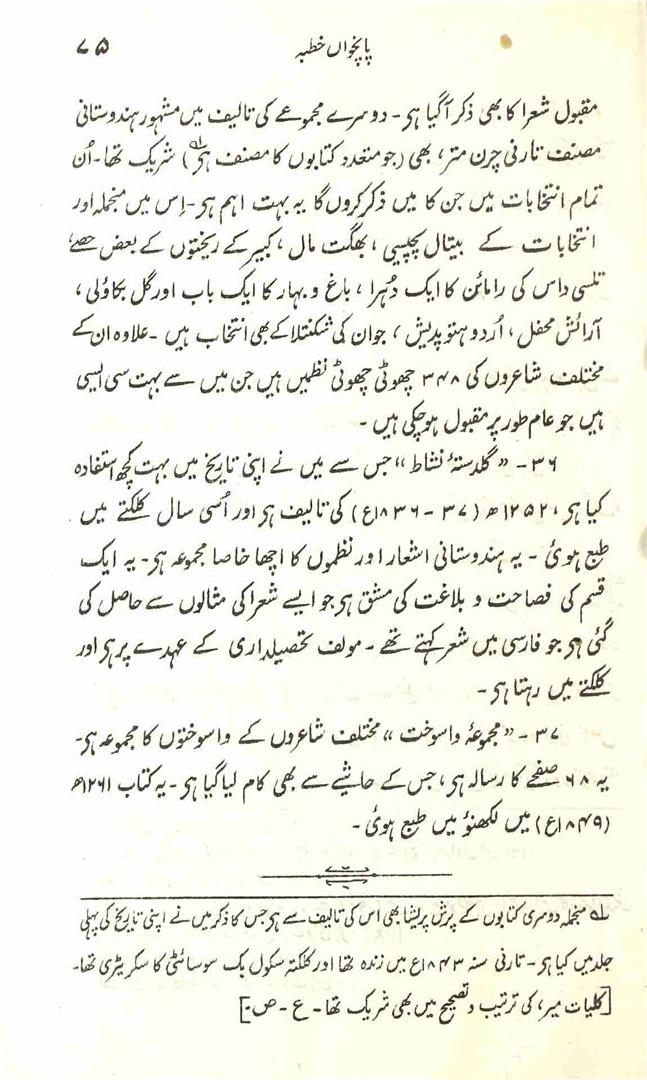 پانچواں خطبہ ۷۵
مقبول شعرا کا بھی ذکر آگیا ہی - دوسرے مجموعے کی تالیف میں مشہور ہندوستانی
مصنف تارنی چرن متر، بھی (جو متعدد کتابوں کا مصنف ہی)؎۱ شریک تھا - اُن
تمام انتخابات میں جن کا میں ذکر کروں گا یہ بہت اہم ہی - اِس میں منجملہ اور
انتخابات کے بیتال پچیسی، بھگت مال، کبیر کے ریختوں کے بعض حصے،
تلسی داس کی رامائن کا ایک دُہرا، باغ و بہار کا ایک باب اور گل بکاؤلی،
آرائش محفل، اُردو ہتوپدیش، جوان کی شکنتلا کے بھی انتخاب ہیں - علاوہ ان کے
مختلف شاعروں کی ۳۴۸ چھوٹی چھوٹی نظمیں ہیں جن میں سے بہت سی ایسی
ہیں جو عام طور پر مقبول ہوچکی ہیں -
۳۶ - ”گلدستۂ نشاط“ جس سے میں نے اپنی تاریخ میں بہت کچھ استفادہ
کیا ہی، ۱۲۵۲ھ (۳۷ - ۱۸۳۶ع) کی تالیف ہی اور اُسی سال کلکتے میں
طبع ہوئی - یہ ہندوستانی اشعار اور نظموں کا اچھا خاصا مجموعہ ہی - یہ ایک
قسم کی فصاحت و بلاغت کی مشق ہی جو ایسے شعرا کی مثالوں سے حاصل کی
گئی ہی جو فارسی میں شعر کہتے تھے - مولف تحصیلداری کے عہدے پر ہی اور
کلکتے میں رہتا ہی -
۳۷ - ”مجموعۂ واسوخت“ مختلف شاعروں کے واسوختوں کا مجموعہ ہی -
یہ ۶۸ صفحے کا رسالہ ہی، جس کے حاشیے سے بھی کام لیا گیا ہی - یہ کتاب ۱۲۶۱ھ
(۱۸۴۹ع) میں لکھنؤ میں طبع ہوئی -
؎۱ منجملہ دوسری کتابوں کے پرش پریشا بھی اس کی تالیف سے ہی جس کا ذکر میں نے اپنی تاریخ کی پہلی
جلد میں کیا ہی - تارنی سنہ ۱۸۴۳ع میں زندہ تھا اور کلکتہ سکول بک سوسائٹی کا سکریٹری تھا -
[کلیات میر، کی ترتیب و تصحیح میں بھی شریک تھا - ع - ص -]